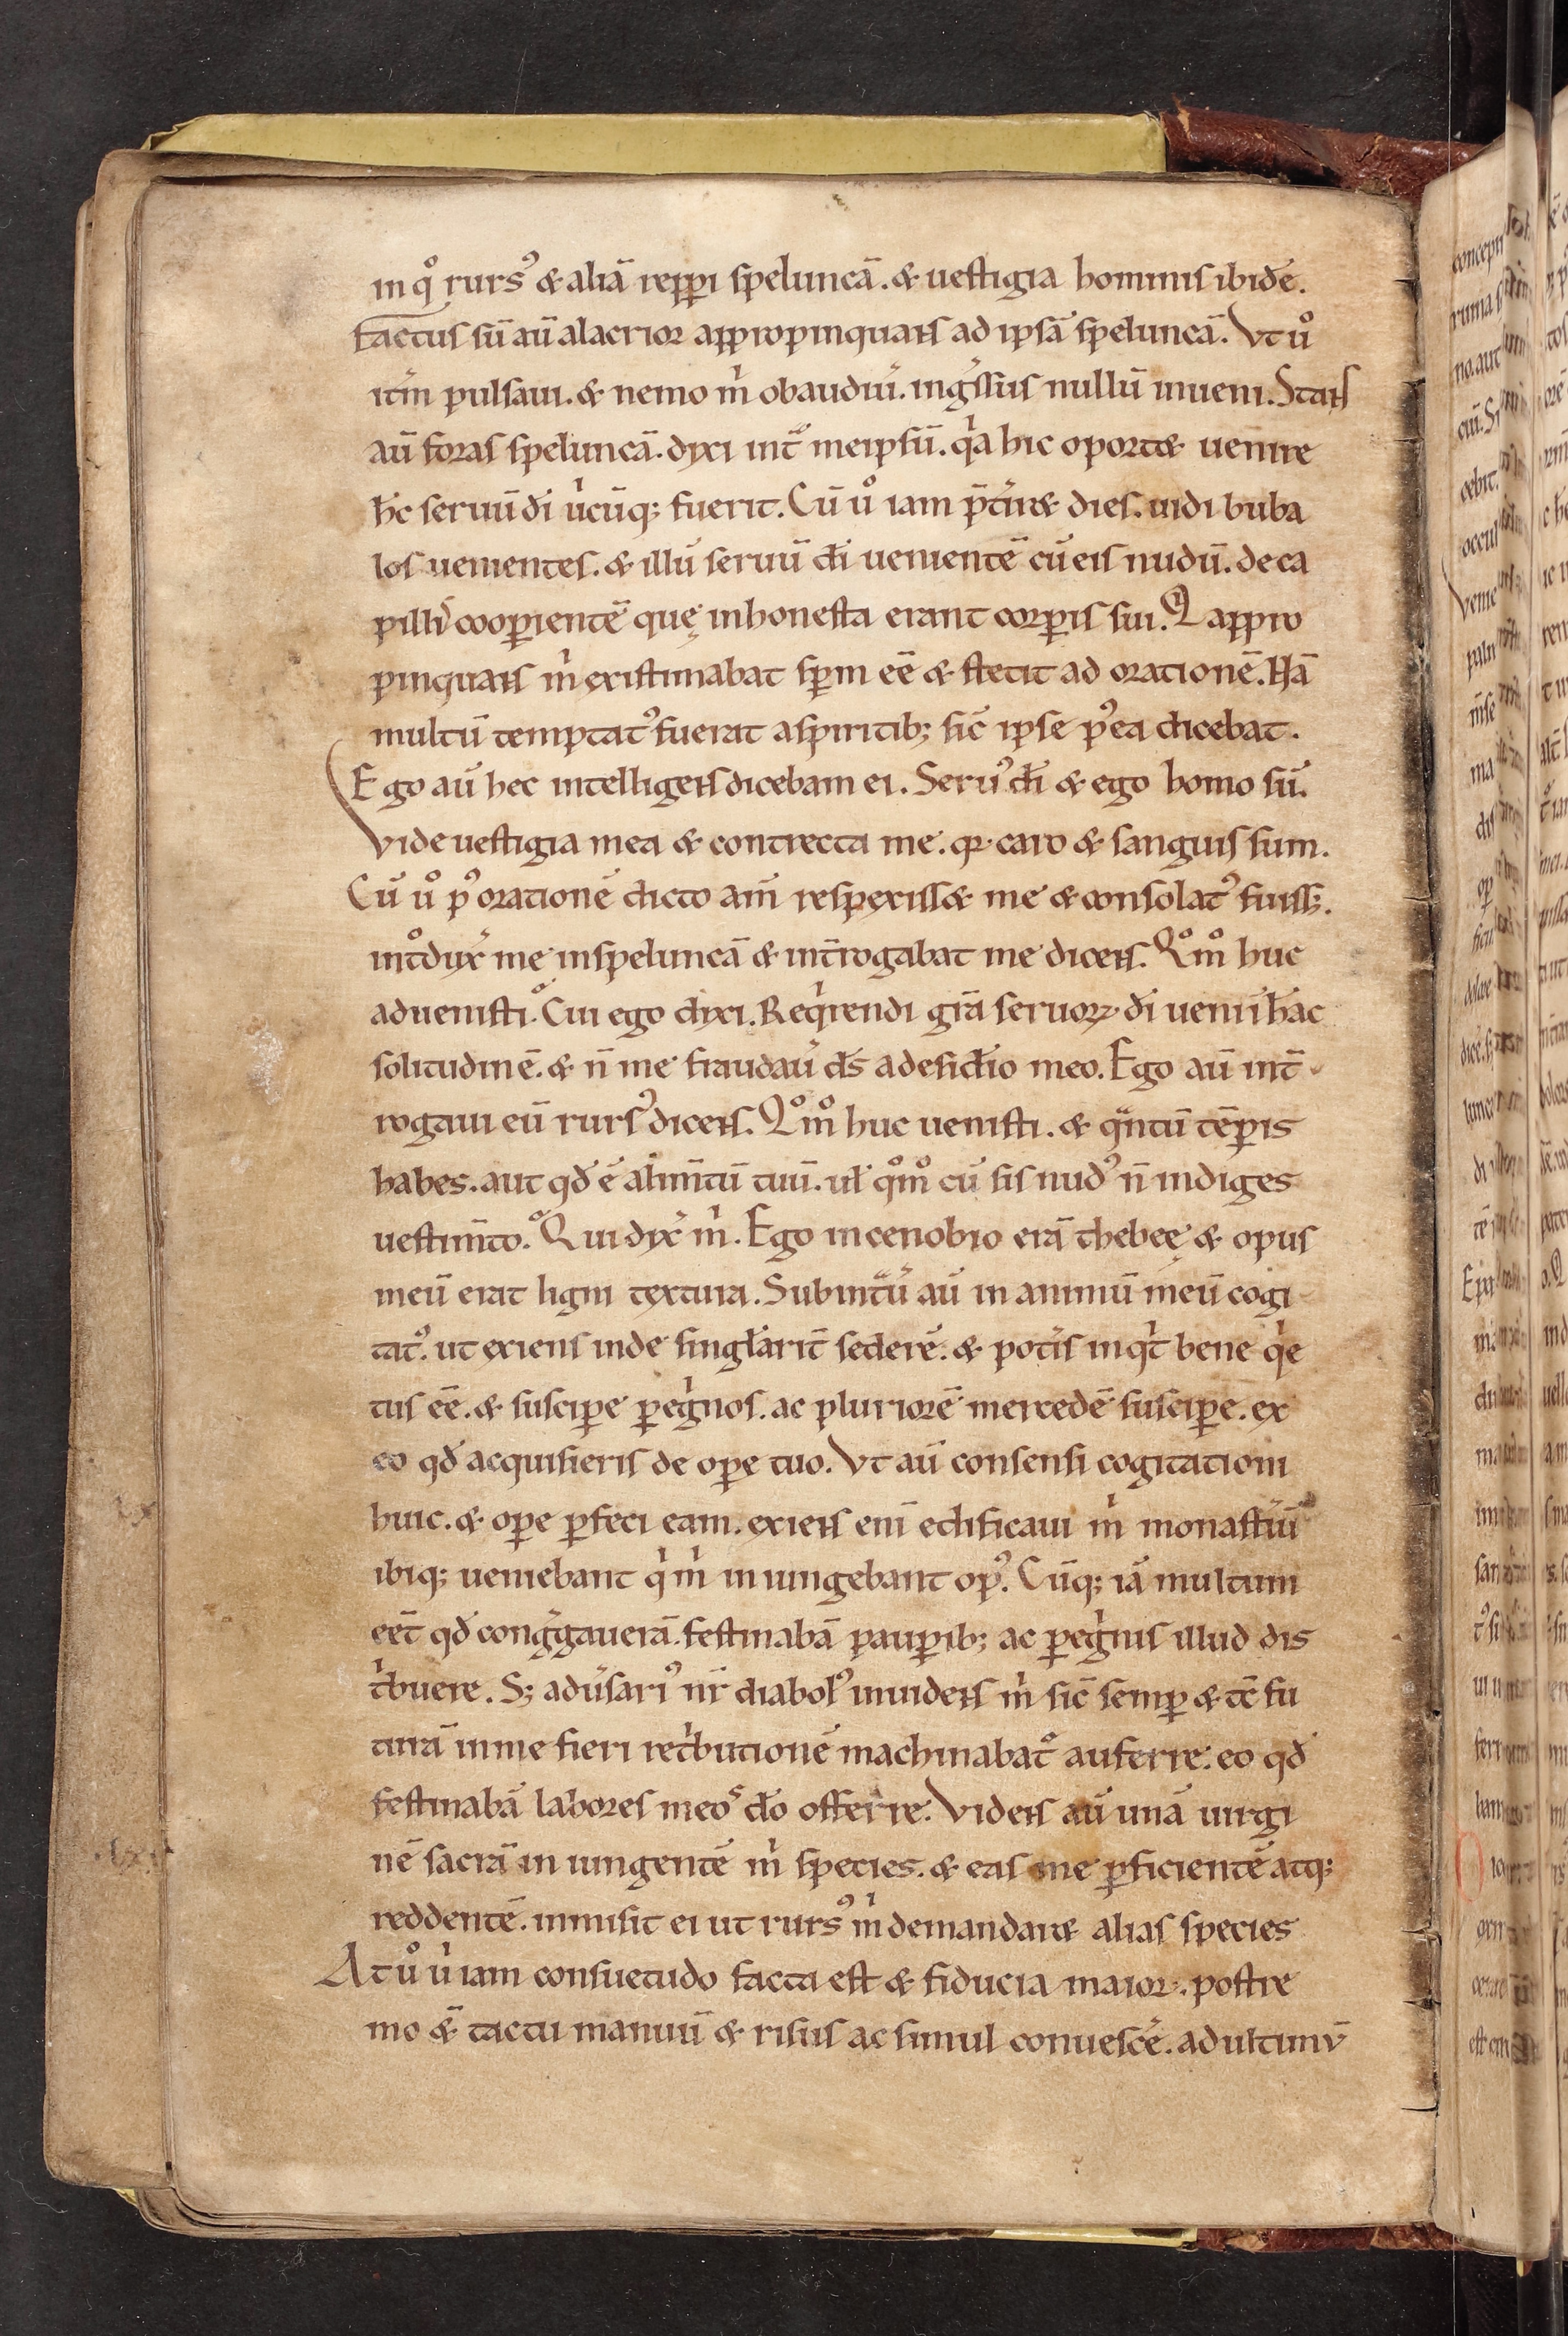 in qͦ rursꝰ & aliā repꝑi speluncā. & uestigia hominis ibidē.
Factus sū aū alacrior appropinquans ad ipsā speluncā. Vt uͦ
itm̄ pulsaui. & nemo m̍ obaudiu̍. ing̍ssus nullū inueni. Stans
aū foras speluncā. dyxi int̄ meipsū. q̍a hic oport& uenire
h̄c seruū di̅ u̍cūq; fuerit. Cū uͦ iam p̄t̍ir& dies. uidi buba
los uenientes. & illū seruū di̅ uenientē cū eis nudū. de ca
pillꝭ cooꝑientē quę inhonesta erant corꝑis sui. Q̍ appro
pinquans m̍ existimabat spm̄ eē & stetit ad orationē. Nā
multū temptatꝰ fuerat a spiritib; sic̄ ipse pꝰea dicebat.
Ego aū hec intelligens dicebam ei. Seruꝰ di̅ & ego homo sū.
Vide uestigia mea & contrecta me. qꝛ caro & sanguis sum.
Cū uͦ pꝰ orationē dicto am̄ respexiss& me & consolatꝰ fuiss;.
int̊dyx̍ me in speluncā & int̄rogabat me dicens. Qͦmͦ huc
aduenisti. Cui ego dyxi. Req̍rendi gr̄a seruoꝝ di̅ ueni i̅ hāc
solitudinē. & n̄ me fraudau̍ ds̄ a desid̍io meo. Ego aū int̄
rogaui eū rursꝰ dicens. Qͦmͦ huc uenisti. & qᷓntū tēꝑis
habes. aut qđ ē alim̄tū tuū. uł qͦmͦ cū sis nudꝰ n̄ indiges
uestim̄to. Qui dyx̍ m̍. Ego in cenobio erā thebeę & opus
meū erat ligni textura. Subint̍u̍ aū in animū meū cogi
tatꝰ. ut exiens inde singłarit̄ sederē. & pot̍is inq̍t bene q̍e
tus eē. & susciꝑe ꝑeg̍nos. ac pluriorē mercedē susciꝑe. ex
eo qđ acquisieris de oꝑe tuo. Vt aū consensi cogitationi
huic. & oꝑe ꝑfeci eam. exiens eni̅ edificaui m̍ monast̍iū
ibiq; ueniebant q̍ m̍ in iungebant opꝰ. Cūq; iā multum
eēt qđ cong̍gauerā. festinabā pauꝑib; ac ꝑeg̍nis illud dis
t̍buere. S; adu̍sariꝰ nr̄ diabolꝰ inuidens m̍ sic̄ semꝑ & tē fu
turā in me fieri ret̍butionē machinabat᷒ auferre. eo qđ
festinabā labores meos dō offerre. Videns aū unā uirgi
nē sacrā in iungentē m̍ species. & eas me ꝑficientē atq;
reddentē. inmisit ei ut rursꝰ m̍ demandar& alias species
At uͦ u̍ iam consuetudo facta est & fiducia maior. postre
mo &̄ tactu manuū & risus ac simul conuesc̄e. ad ultimū